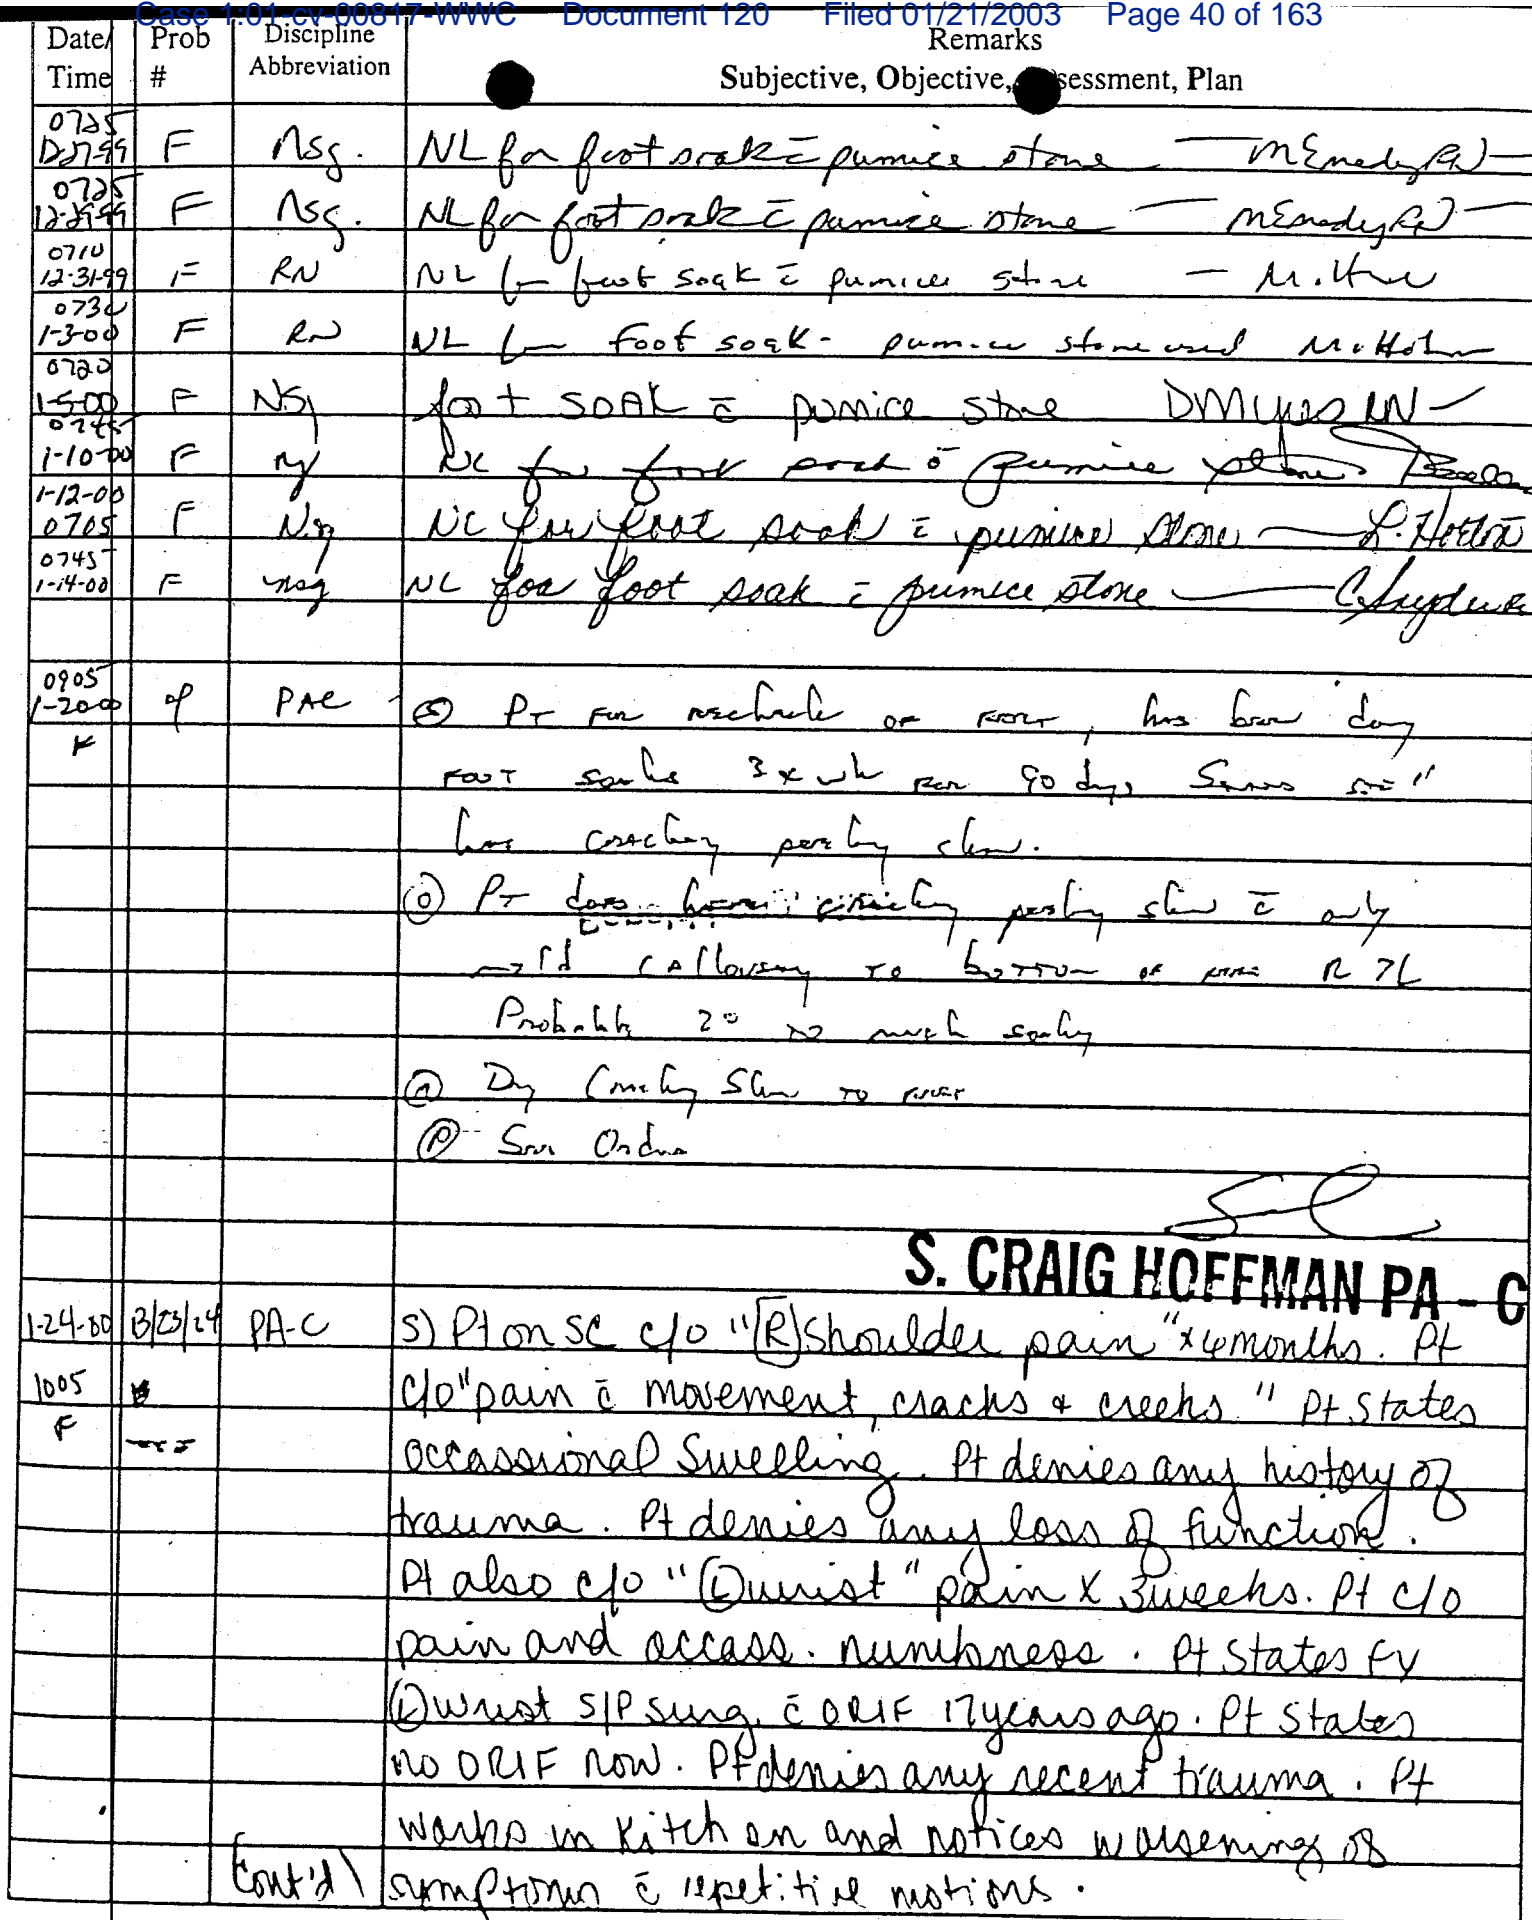 Case 1:01-cv-00817-WWC Document 120 Filed 01/21/2003 Page 40 of 163
Date/ Prob Discipline Remarks
Time # Abbreviation Subjective, Objective, Assessment, Plan
0725
12-27-99 F Nsg. NL for foot soak c̄ pumice stone — RN —
0725
12-29-99 F Nsg. NL for foot soak c̄ pumice stone — RN —
0710
12-31-99 F RN NL for foot soak c̄ pumice stone —
0730
1-3-00 F RN NL for foot soak - pumice stone used
0720
1-5-00 F Nsg foot SOAK c̄ pumice stone RN —
0745
1-10-00 F NL for foot soak c̄ pumice stone
1-12-00
0705 F Nsg NL for foot soak c̄ pumice stone — L. Horton
0745
1-14-00 F nsg NL for foot soak c̄ pumice stone — C. Snyder
0905
1-20-00 PAC Ⓢ PT for recheck of foot, has been doing
F
foot soaks 3 x wk for 90 days states still
has cracking peeling skin.
Ⓞ PT does have cracking peeling skin c̄ only
mild callousing to bottom of R
Probably 2° to much soaking
Ⓐ Dry Cracking Skin to feet
Ⓟ See Orders
S. CRAIG HOFFMAN PA - C
1-24-00 B/23/24 PA-C S) Pt on SC c/o "Ⓡ Shoulder pain" x 4 months. Pt
1005 c/o "pain c̄ movement, cracks & creeks" Pt States
F occassional Swelling. Pt denies any history of
trauma. Pt denies any loss of function.
Pt also c/o "Ⓛ wrist" pain x 3 weeks. Pt c/o
pain and occass. numbness. Pt States Fx
Ⓛ wrist S/P surg. c̄ ORIF 17 years ago. Pt States
no ORIF now. Pt denies any recent trauma. Pt
works in Kitchen and notices worsening of
Cont'd symptoms c̄ repetitive motions.